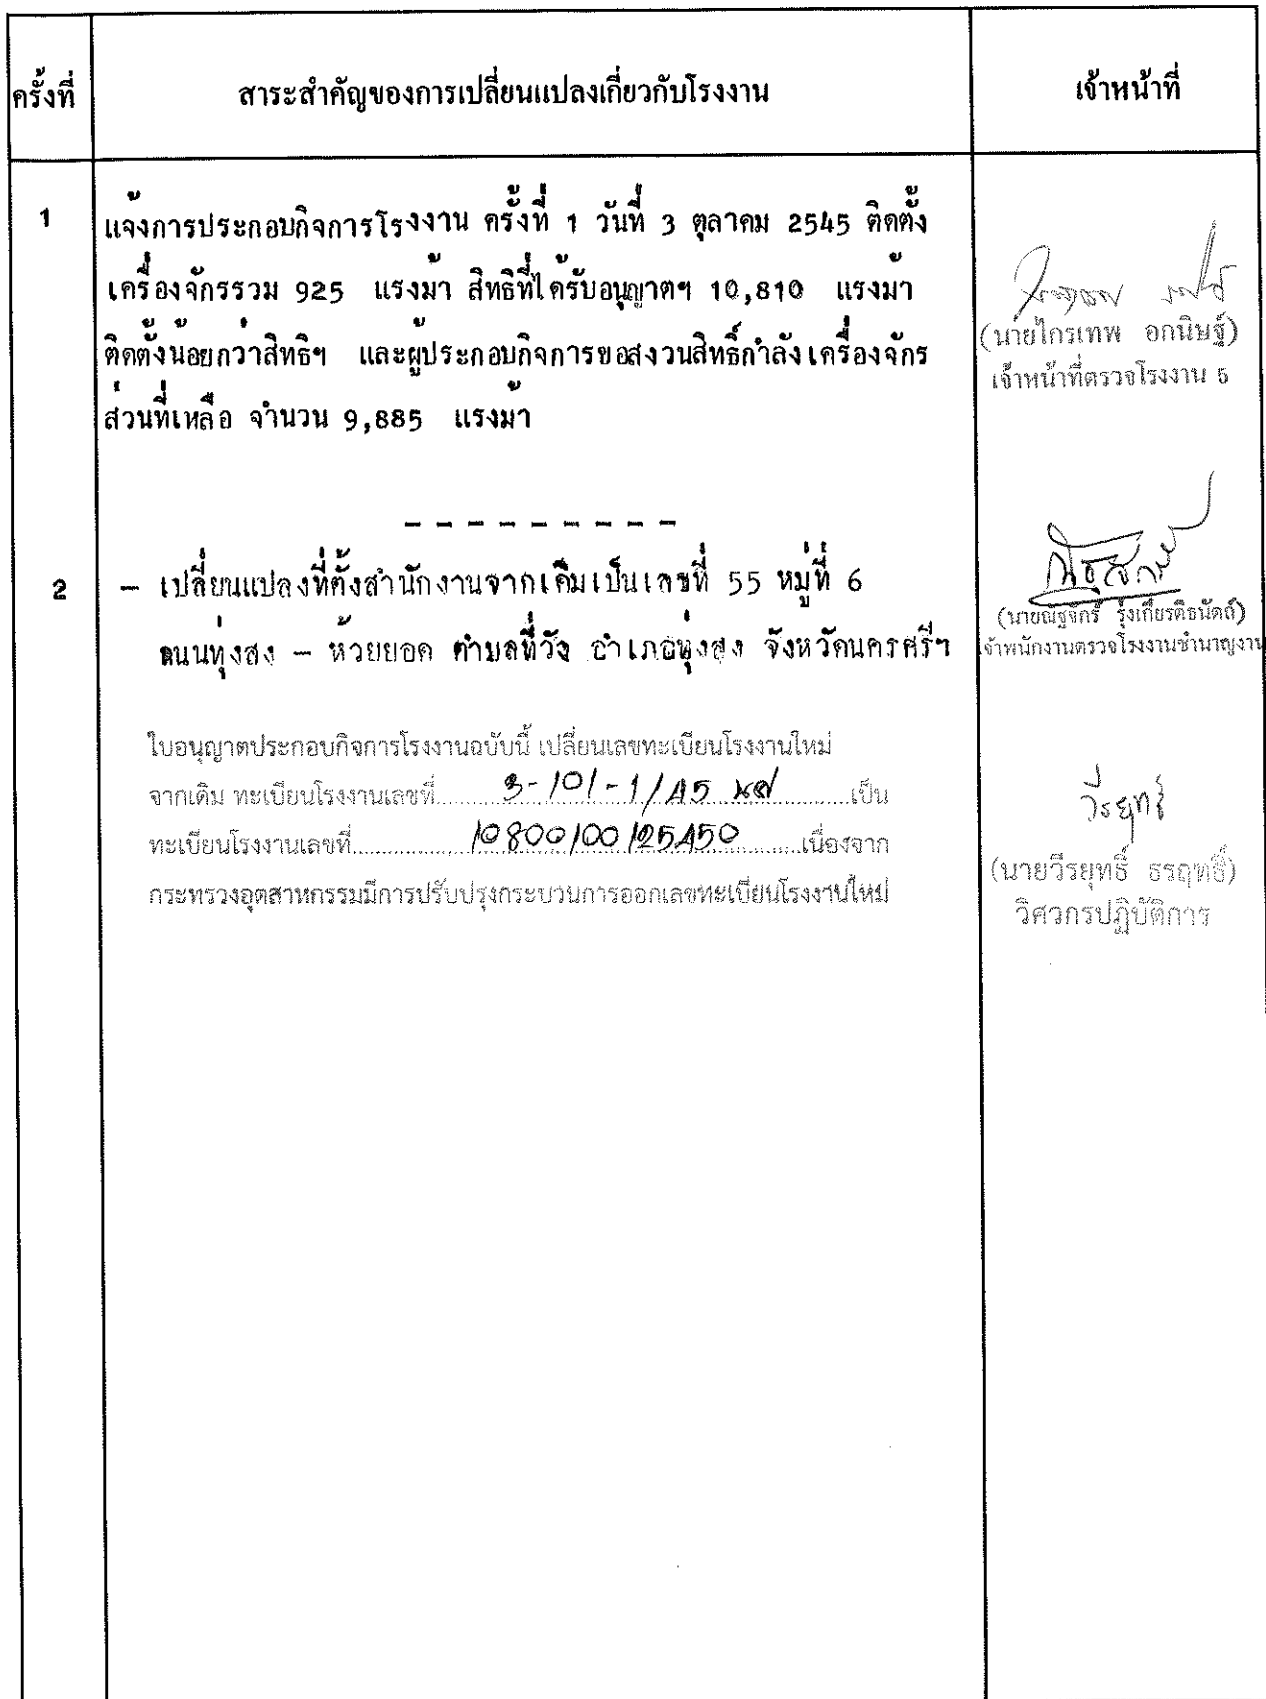 ครั้งที่ สาระสำคัญของการเปลี่ยนแปลงเกี่ยวกับโรงงาน เจ้าหน้าที่
1 แจ้งการประกอบกิจการโรงงาน ครั้งที่ 1 วันที่ 3 ตุลาคม 2545 ติดตั้ง
เครื่องจักรรวม 925 แรงม้า สิทธิที่ได้รับอนุญาตฯ 10,810 แรงม้า
ติดตั้งน้อยกว่าสิทธิฯ และผู้ประกอบกิจการขอสงวนสิทธิ์กำลังเครื่องจักร
ส่วนที่เหลือ จำนวน 9,885 แรงม้า
(นายไกรเทพ อกนิษฐ์)
เจ้าหน้าที่ตรวจโรงงาน 5
- - - - - - - - -
2 - เปลี่ยนแปลงที่ตั้งสำนักงานจากเดิมเป็นเลขที่ 55 หมู่ที่ 6
ถนนทุ่งสง - ห้วยยอด ตำบลที่วัง อำเภอทุ่งสง จังหวัดนครศรีฯ
(นายณัฐจักร์ รุ่งเกียรติธนัตถ์)
เจ้าพนักงานตรวจโรงงานชำนาญงาน
ใบอนุญาตประกอบกิจการโรงงานฉบับนี้ เปลี่ยนเลขทะเบียนโรงงานใหม่
จากเดิม ทะเบียนโรงงานเลขที่ 3-101-1/45 นศ เป็น
ทะเบียนโรงงานเลขที่ 10800100125450 เนื่องจาก
กระทรวงอุตสาหกรรมมีการปรับปรุงกระบวนการออกเลขทะเบียนโรงงานใหม่
วีรยุทธ์
(นายวีรยุทธิ์ ธรฤทธิ์)
วิศวกรปฏิบัติการ